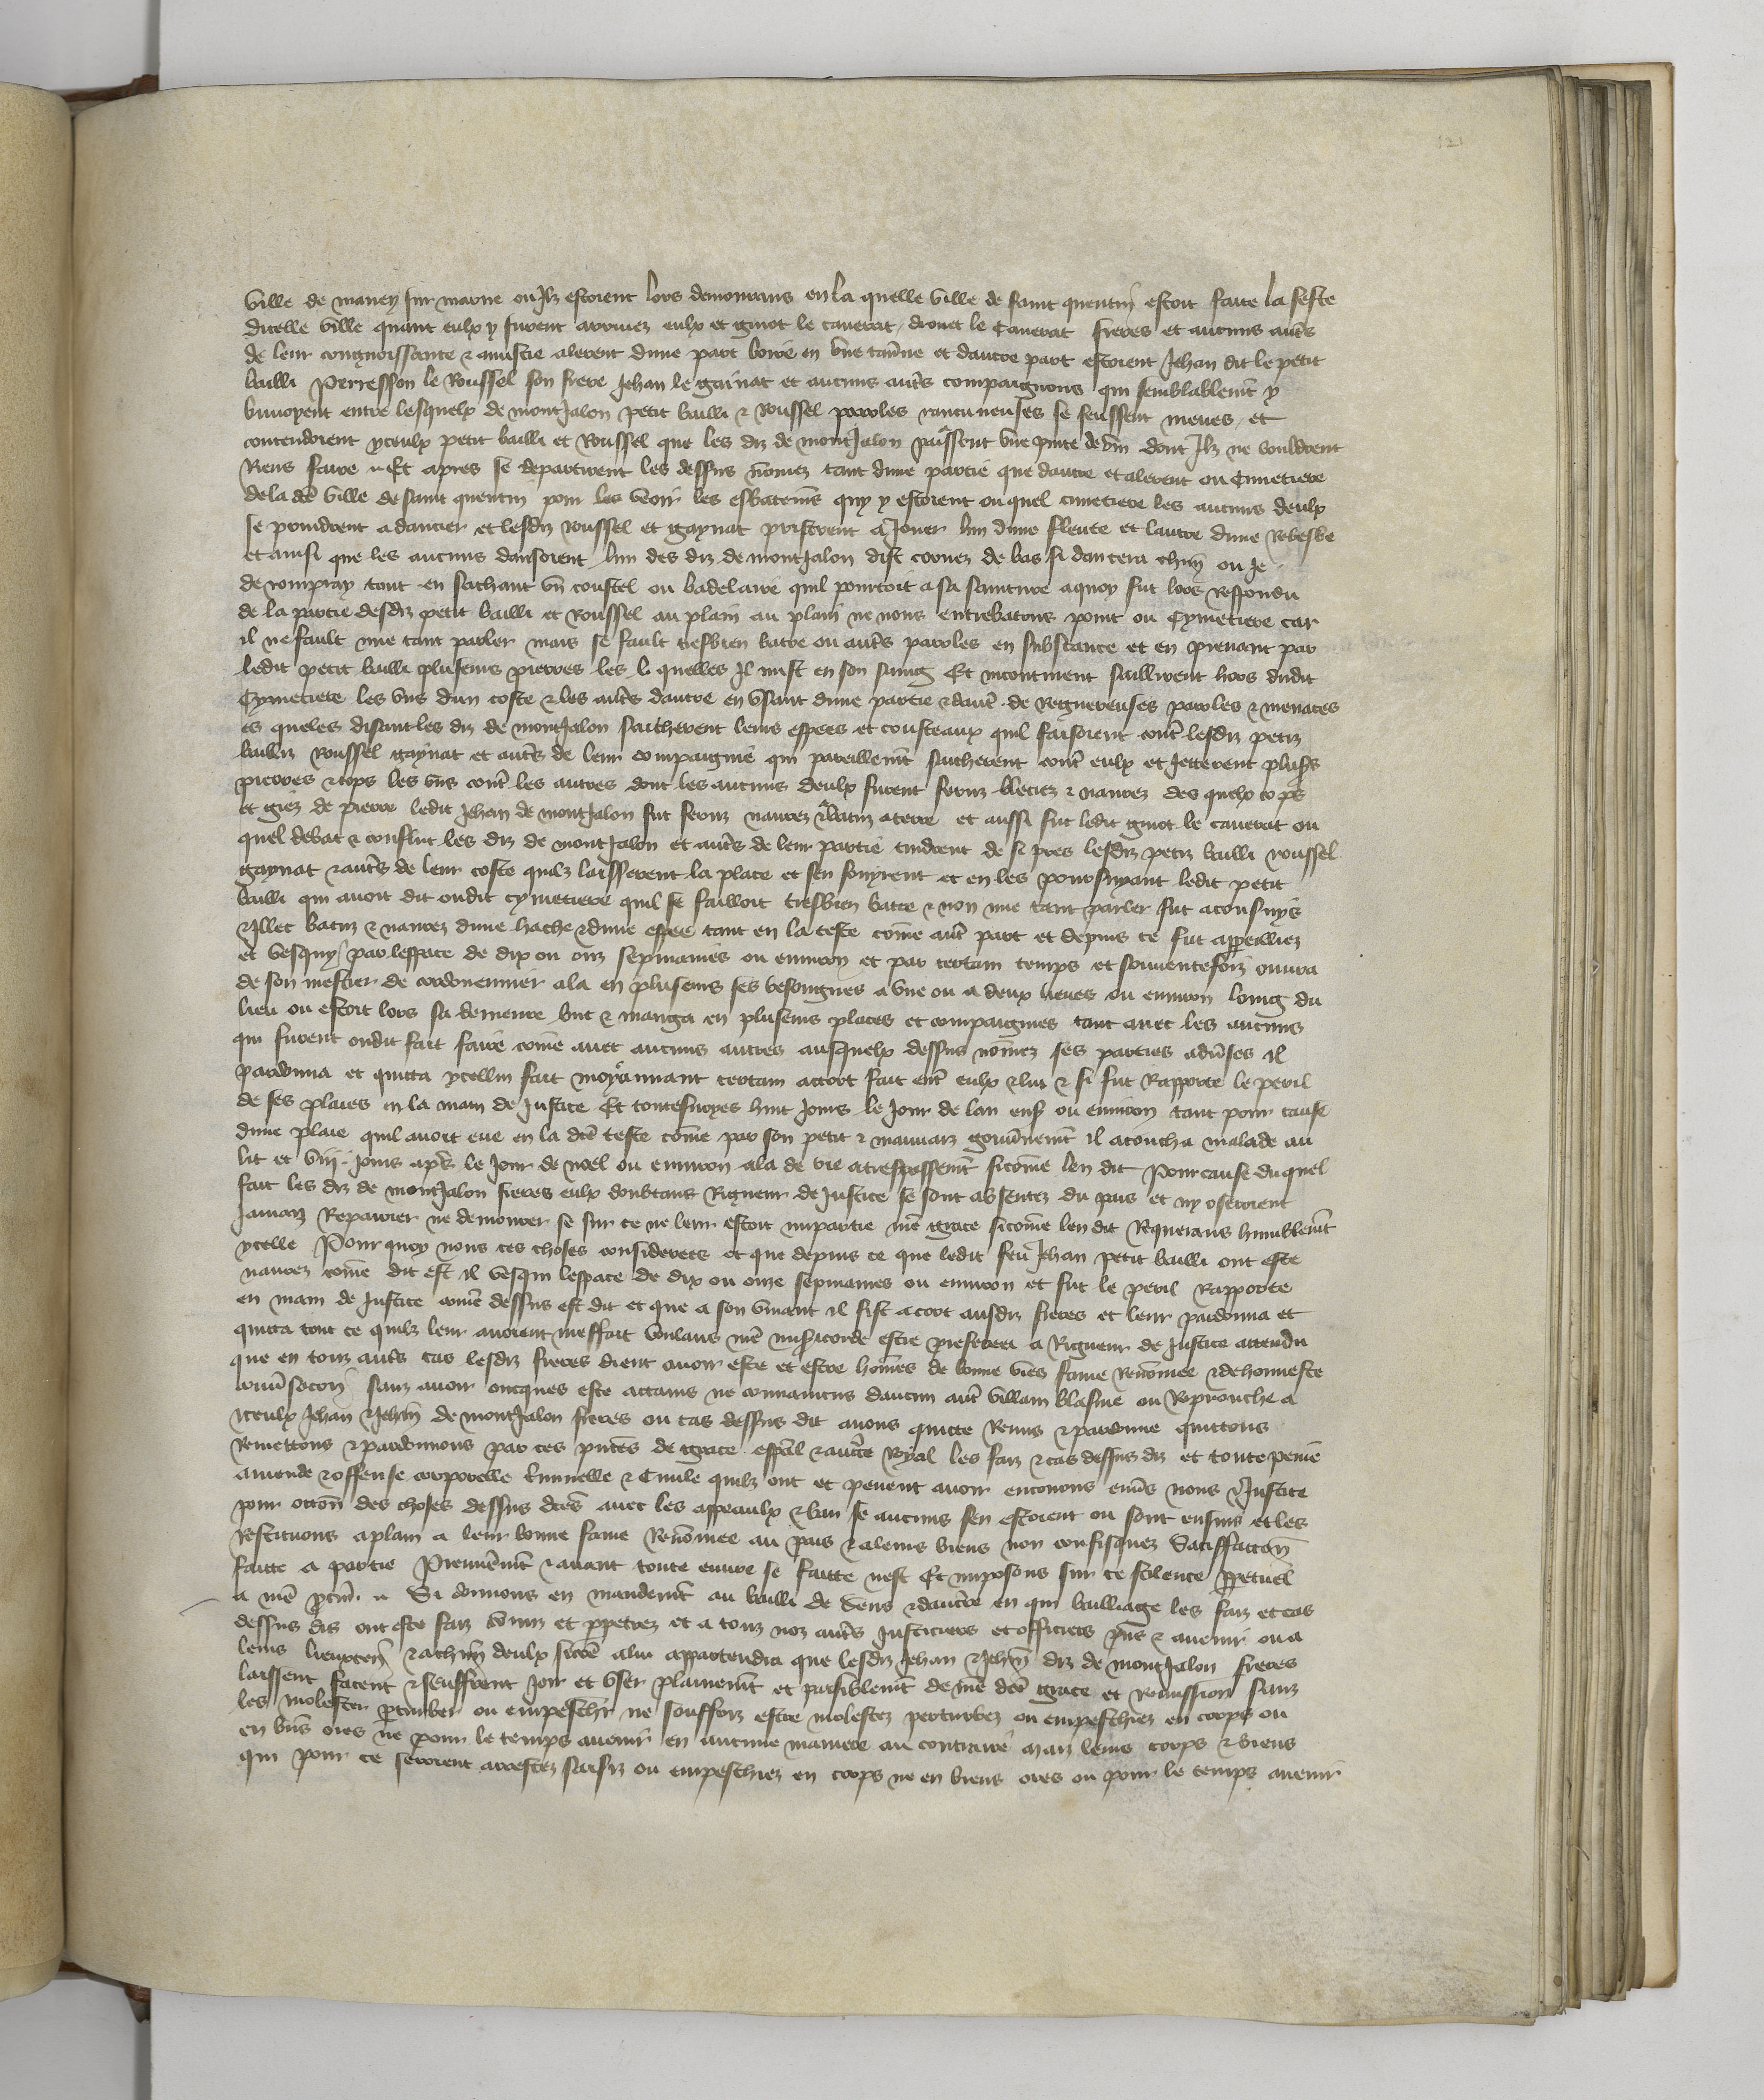 ville de maney sur marne ou Ilz estoient lors demourans en la quelle ville de saint quentin estoit faite la feste
dicelle ville quant eulx y furent arrivez eulx et guiot le caverat drouet le Caverat freres et aucuns aut̃s
de leur congnoissance & amistie alerent dune part boire en vne tau̾ne et dautre part estoient Jehan dit le petit
bailli Perresson le Roussel son frere Jehan le gainat et aucuns aut̃s compaignons qui semblablemt̃ y
buuoyent entre lesquelx de montJalon petit bailli & Roussel paroles rancuneuses se feussent meues et
contendoient yceulx petit bailli et Roussel que les diz de montJalon paiassent vne pinte de vin dont Ilz ne vouldrent
Riens faire Et apres se departirent les dessus nõmez tant dune partie que dautre et alerent ou Cimetiere
de la dce ville de saint quentin pour les veoir les esbatemẽs quy y estoient ou quel cimetiere les aucuns deulx
se prindrent a dancier et lesdiz roussel et gaynat pristrent a Jouer lun dune fleute et lautre dune Rebesbe
et ainsi que les aucuns dansoient lun des diz de montJalon dist cornez de bas si dancera chũn ou Je
de rompray tout en sachant vñ coustel ou badelaire quil pourtoit a sa sainture a quoy fut lors Respondu
de la partie desdiz petit bailli et Roussel au plain au plain ne nous entrebatons point ou Cymetiere car
il ne fault mie tant parler mais se fault tresbien batre ou aut̃s paroles en substance et en prenant par
ledit petit bailli plusieurs pierres les quelles Il mist en son saing Et incontinent saillirent hors dudit
Cymetiere les vns dun coste & les aut̃s dautre en vsant dune partie & daut̃ de Rigureuses paroles & menaces
es queles disant les diz de montJalon sacherent leurs espees et cousteaux quil faisoient cont̃ lesdiz petiz
bailliz Roussel gaynat et aut̃s de leur compaignie qui pareillemt̃ sacherent cont̃ eulx et Jetterent plus̃s
pierres & cops les vns cont̃ les autres dont les aucuns deulx furent feruz bleciez & navrez des quelx cops
et giez de pierre ledit Jehan de montJalon fut feruz navrez & batuz a terre et aussi fut ledit guiot le caverat ou
quel debat & conflict les diz de montJalon et aut̃s de leur partie tindrent de si pres lesdiz petiz bailli roussel
gaynat & aut̃s de leur coste quilz laisserent la place et sen fouyrent et en les poursuyant ledit petit
bailli qui auoit dit oudit cymetiere quil se failloit tresbien batre & non mie tant parler fut aconsuys
& Illec batuz & navrez dune hache & dune espee tant en la teste cõme aut̃ part et depuis ce fut appareilliez
et vesquy par lespace de dix ou onz sepmaines ou environ et par certain temps et souventesfoiz ouura
de son mestier de cordouennier ala en plusieurs ses besoingnes a vne ou a deux lieues ou environ loing du
lieu ou estoit lors sa demeure but & manga en plusieurs places et compaignies tant avec les aucuns
qui furent oudit fait faire cõme avec aucuns autres ausquelx dessus nõmez ses parties adu̾ses il
pardonna et quicta ycellui fait moyennant certain accort fait ent̃ eulx & lui & si fut Rapporte le peril
de ses plaies en la main de Justice Et toutesuoyes huit Jours le Jour de lan ens̃ ou environ tant pour cause
dune plaie quil avoit eue en la dce teste cõme par son petit & mauvaiz gouu̾nemt̃ il acoucha malade au
lit et viij Jours ap̃s le Jour de noel ou environ ala de vie a trespassemt̃ sicõme len dit Pour cause du quel
fait les diz de montJalon freres eulx doubtans Rigueur de Justice se sont absentez du pais et ny oseroient
Jamaiz Repairier ne demourer se sur ce ne leur estoit impartie nr̃e grace sicõme len dit Requerans humblemt̃
ycelle Pour quoy nous ces choses considerees et que depuis ce que ledit feu Jehan petit bailli ont este
navrez cõme dit est il vesqui lespace de dix ou onze sepmaines ou environ et fut le peril Rapporte
en main de Justice cõme dessus est dit et que a son vivant il fist acort ausdiz freres et leur pardonna et
quicta tout ce quilz leur avoient meffait voulans nr̃e mis̃icorde estre preferee a Rigueur de Justice attendu
que en touz aut̃s cas lesdiz freres dient avoir este et estre hõmes de bonne vie fame Renõmee & de honneste
conu̾sacion sanz avoir oncques este attains ne convaincus daucun aut̃ villain blasme ou Reprouche a
yceulx Jehan & Jehñ de montJalon freres ou cas dessus dit avons quicte Remis & pardonne quittons
Remettons & pardonnons par ces pñtes de grace esp̃al & aucte Royal les faiz & cas dessus diz et toute peine
amende & offense corporelle Criminelle & Civile quilz ont et pevent avoir encouruz enu̾s nous & Justice
pour occon̄ des choses dessus dces avec les appeaulx & ban se aucuns sen estoient ou sont ensuiz et les
Restituons a plain a leur bonne fame Renõmee au pais & a leurs biens non confisquez Satisffaccon̄
faitte a partie Premieremt̃ & avant toute euvre se faitte nest Et imposons sur ce scilence ppetuel
a nr̃e pc̃ur Si donnons en mandemt̃ au bailli de Sens & dauc̾re en qui bailliage les faiz et cas
dessus dis ont este faiz comis et ppetrez et a touz noz aut̃s Justiciers et officiers pñs & avenir ou a
leurs lieuxten̄ & a chũn deulx sicõe a lui appartendra que lesdiz Jehan & Jehñ diz de montJalon freres
laissent facent & seuffrent Joir et vser plainemt̃ et paisiblemt̃ de nr̃e dce grace et remission sanz
les molester pturber ou empeschr̃ ne souffrir estre molestez perturbez ou empeschiez en corps ou
en biẽs ores ne pour le temps avenir en aucune maniere au contraire Maiz leurs corps & biens
qui pour ce seroient arrestez saisiz ou empeschiez en corps ne en biens ores ou pour le temps avenir